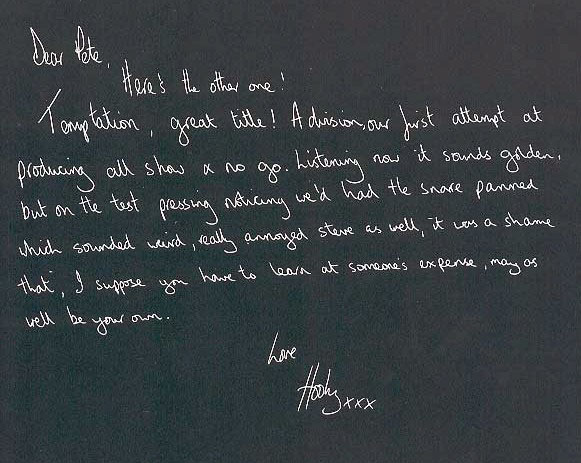 Dear Pete,
Here's the other one!
Temptation, great title! A division, our first attempt at
producing all show & no go. Listening now it sounds golden,
but on the test pressing noticing we'd had the snare panned
which sounded weird, really annoyed Steve as well, it was a shame
that, I suppose you have to learn at someone's expense, may as
well be your own.
Love
Hooky xxx